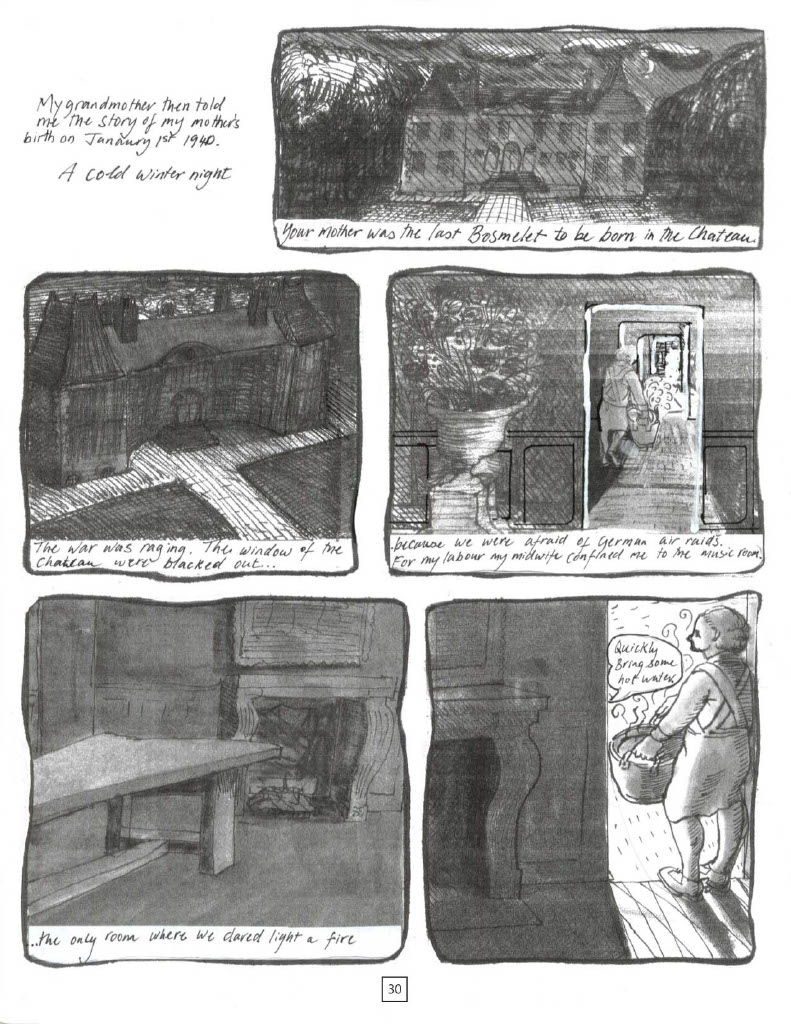 My grandmother then told
me the story of my mother's
birth on Janaury 1st 1940.
A cold winter night
Your mother was the last Bosmelet to be born in the Chateau.
The war was raging. The window of the
Chateau were blacked out...
.because we were afraid of German air raids.
For my labour my midwife confined me to the music room.
...the only room where we dared light a fire
Quickly
Bring some
hot water
30